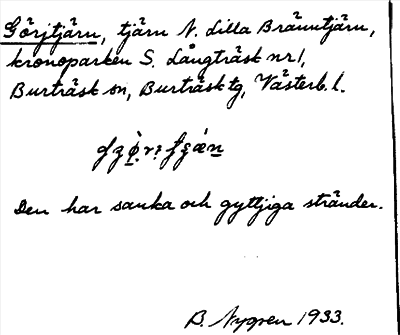 Görjtjärn, tjärn N. Lilla Bränntjärn,
kronoparken S. Långträsk nr 1,
Burträsk sn, Burträsk tg, Västerb. l.
Den har sanka och gyttjiga stränder.
B. Nygren 1933.